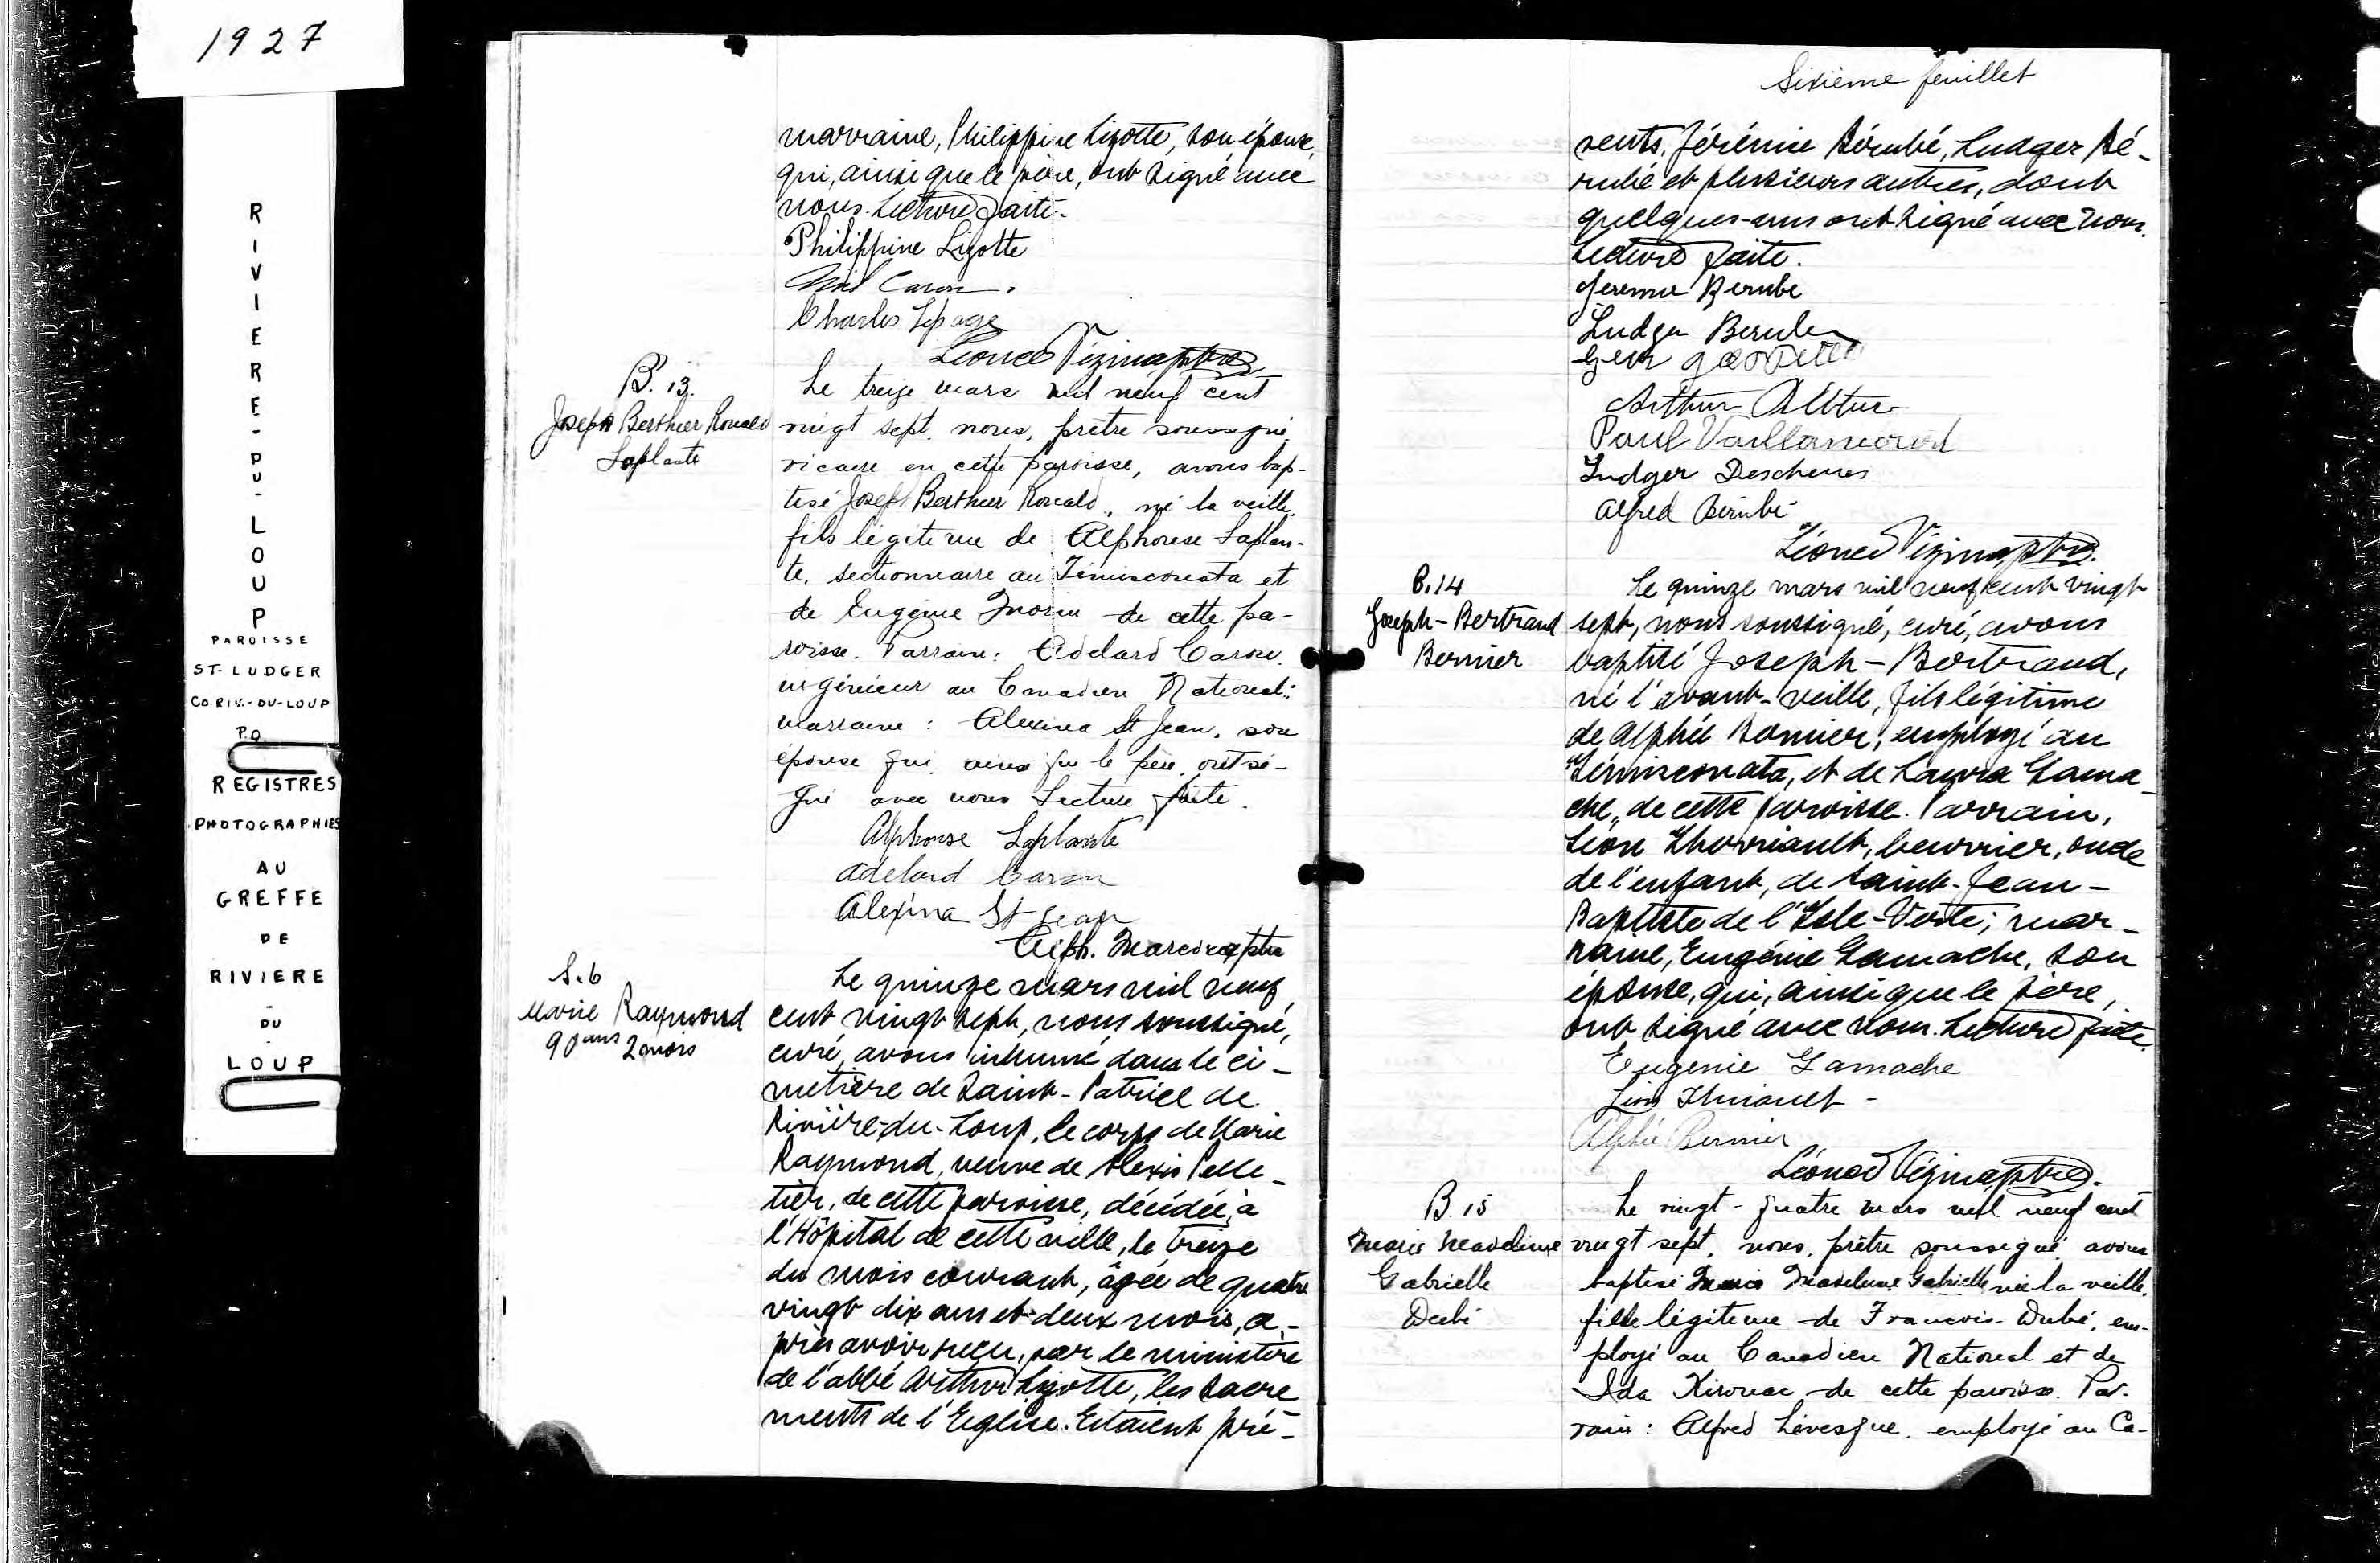 1927
RIVIERE-DU-LOUP
PAROISSE
ST-LUDGER
CO. RIV.-DU-LOUP
P.Q
REGISTRES
PHOTOGRAPHIES
AU
GREFFE
DE
RIVIERE
-
DU
-
LOUP
marraine, Philippine Lizotte, son épouse,
qui, ainsi que le père, ont signé avec
nous. Lecture faite.
Philippine Lizotte
Caron.
Charles Lepage
Léonce Vézina ptre
B. 13.
Joseph Berthier Ronald
Laplante
Le treize mars mil neuf cent
vingt sept, nous, prêtre soussigné,
vicaire en cette paroisse, avons bap-
tisé Joseph Berthier Ronald, né la veille,
fils légitime de Alphonse Laplan-
te, sectionnaire au Témiscouata et
de Eugénie Morin de cette pa-
roisse. Parrain: Adelard Caron,
ingénieur au Canadien National;
marraine: Alexina St Jean, son
épouse qui, ainsi que le père, ont si-
gné avec nous Lecture faite.
Alphonse Laplante
Adelard Caron
Alexina St Jean
ptre
S. 6
Marie Raymond
90 ans 2 mois
Le quinze mars mil neuf
cent vingt sept, nous soussigné,
curé, avons inhumé dans le ci-
metière de Saint-Patrice de
Rivière-du-Loup, le corps de Marie
Raymond, veuve de Alexis Pelle-
tier, de cette paroisse, décédée, à
l'Hôpital de cette ville, le treize
du mois courant, âgée de quatre
vingt dix ans et deux mois, a-
près avoir reçu, par le ministère
de l'abbé Arthur Lizotte, les sacre
ments de l'Eglise. Etaient pré-
Sixième feuillet
sents, Jérémie Bérubé, Ludger Bé-
rubé et plusieurs autres, dont
quelques-uns ont signé avec nous.
Lecture faite.
Jeremie Berube
Ludger Berube
Arthur
Paul Vaillancourt
Ludger Deschenes
Alfred Bérubé
Léonce Vézina ptre.
B. 14
Joseph-Bertrand
Bernier
Le quinze mars mil neuf cent vingt
sept, nous soussigné, curé, avons
baptisé Joseph-Bertrand,
né l'avant-veille, fils légitime
de Alphée Bernier, employé au
Témiscouata, et de Laura Gama
che, de cette paroisse. Parrain,
Léon Thérriault, beurrier, oncle
de l'enfant, de Saint-Jean-
Baptiste de l'Isle-Verte; mar-
raine, Eugénie Gamache, son
épouse, qui, ainsi que le père,
ont signé avec nous. Lecture faite.
Eugenie Gamache
Léon Thériault
Alphée Bernier
Léonce Vézina ptre.
B. 15
Marie Madeleine
Gabrielle
Dubé
Le vingt-quatre mars mil neuf cent
vingt sept, nous, prêtre soussigné, avons
baptisé Marie Madeleine Gabrielle née la veille,
fille légitime de Francois Dubé, em-
ployé au Canadien National et de
Ida Kirouac de cette paroisse. Par-
rain: Alfred Lévesque, employé au Ca-